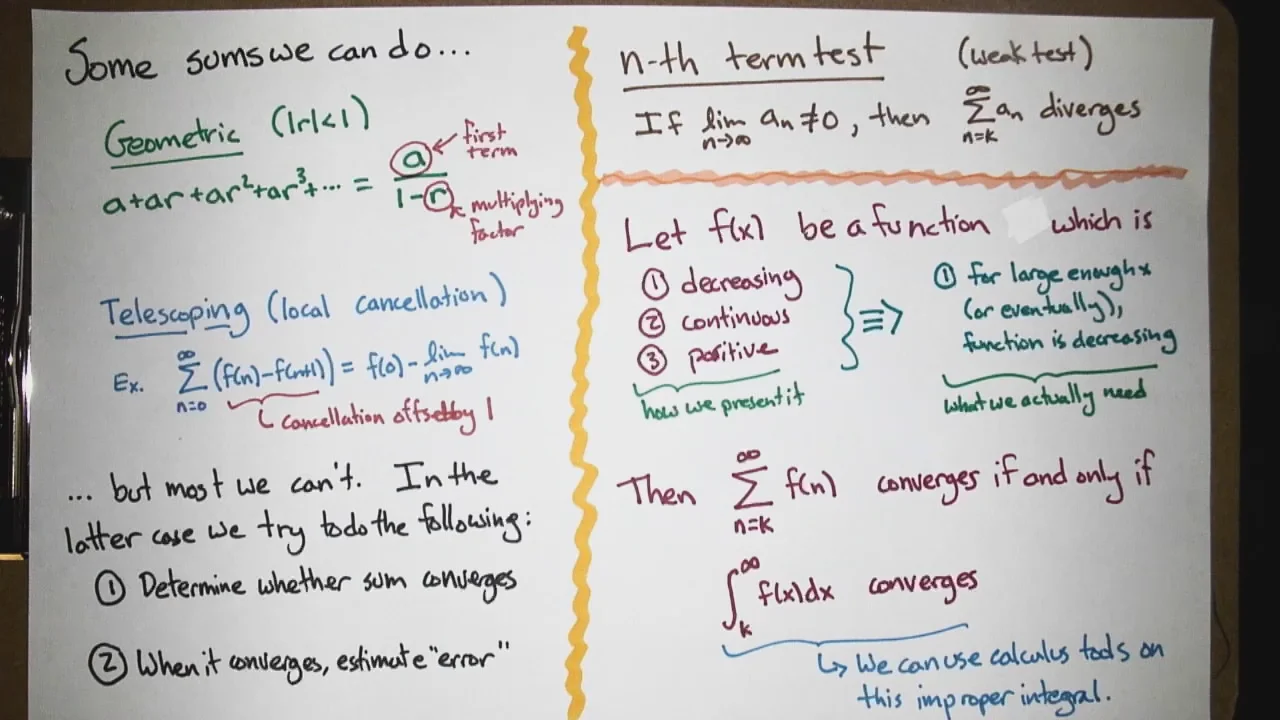 Some sums we can do...
Geometric (|r|<1)
a+ar+ar²+ar³+... = a/(1-r)
first
term
multiplying
factor
Telescoping (local cancellation)
Ex. ∑_{n=0}^{∞} (f(n)-f(n+1)) = f(0) - lim_{n→∞} f(n)
cancellation offset by 1
... but most we can't. In the
latter case we try to do the following:
① Determine whether sum converges
② When it converges, estimate "error"
n-th term test (weak test)
If lim_{n→∞} a_n ≠ 0, then ∑_{n=k}^{∞} a_n diverges
Let f(x) be a function which is
① decreasing
② continuous
③ positive
how we present it
① for large enough x
(or eventually),
function is decreasing
what we actually need
Then ∑_{n=k}^{∞} f(n) converges if and only if
∫_k^∞ f(x)dx converges
↳ We can use calculus tools on
this improper integral.